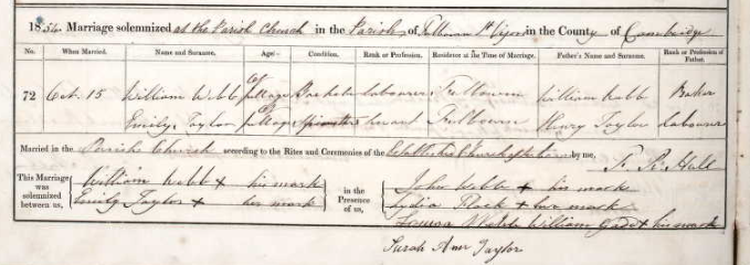 1854. Marriage solemnized at the Parish Church in the Parish of Fulbourn St Vigors in the County of Cambridge
No. When Married. Name and Surname. Age. Condition. Rank or Profession. Residence at the Time of Marriage. Father's Name and Surname. Rank or Profession of Father.
72 Oct. 15 William Webb of full age Bachelor Labourer Fulbourn William Webb Baker
Emily Taylor of full age Spinster Servant Fulbourn Henry Taylor Labourer
Married in the Parish Church according to the Rites and Ceremonies of the Established Church by me, Hall
This Marriage was solemnized between us, William Webb x his mark in the Presence of us, John Webb x his mark
Emily Taylor x her mark Lydia x her mark
William x his mark
Sarah Ann Taylor